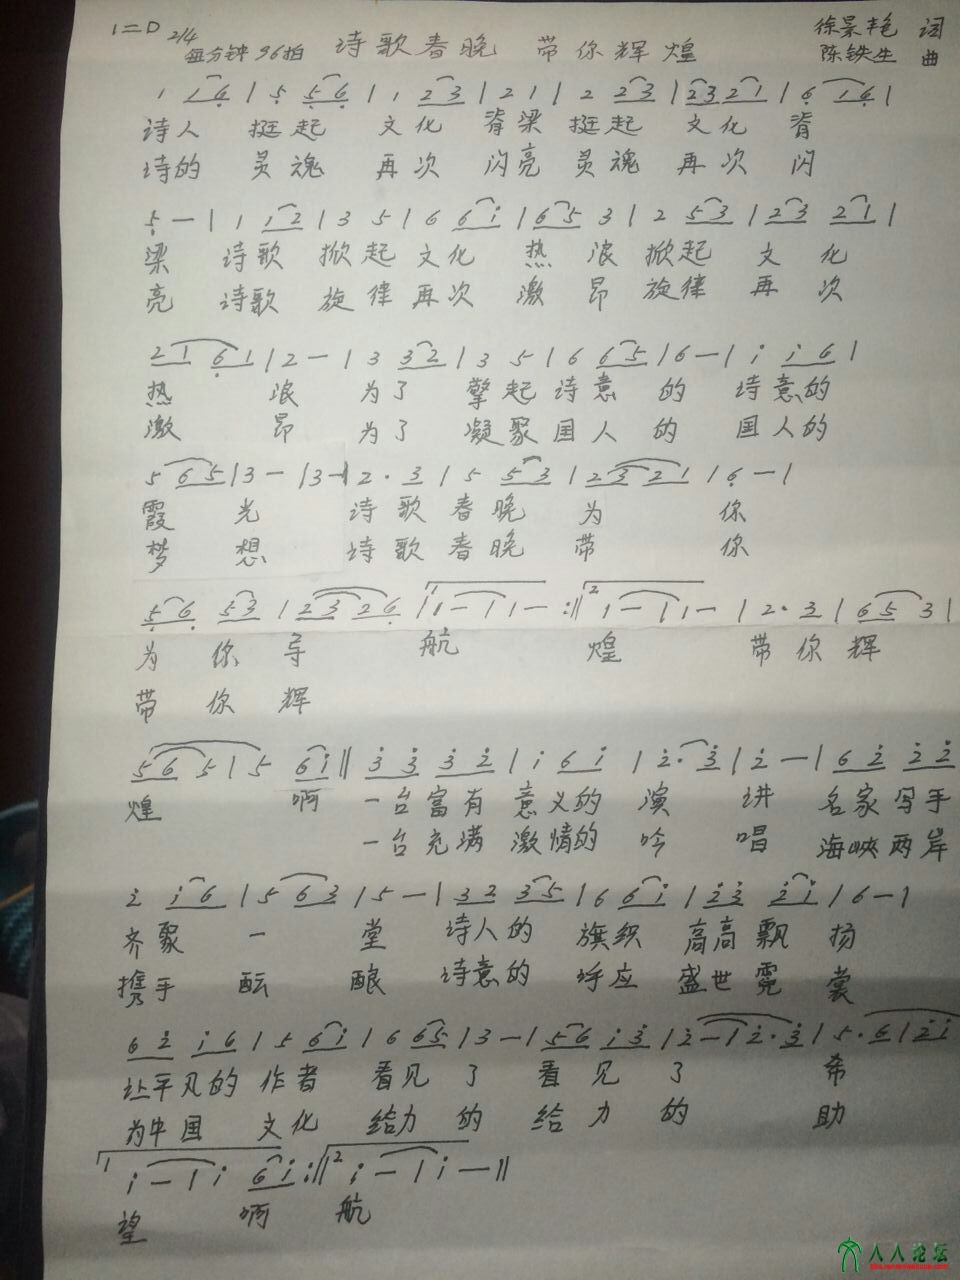 1=D 2/4
每分钟96拍 诗歌春晚 带你辉煌 徐景艳 词
陈铁生 曲
1 1 6 | 5 5 6 | 1 2 3 | 2 1 | 2 2 3 | 2 3 2 1 | 6 1 6 |
诗人 挺起 文化 脊梁 挺起 文化 脊
诗的 灵魂 再次 闪亮 灵魂 再次 闪
5 — | 1 1 2 | 3 5 | 6 6 i | 6 5 3 | 2 5 3 | 2 3 2 1 |
梁 诗歌 掀起 文化 热 浪 掀起 文 化
亮 诗歌 旋律 再次 激 昂 旋律 再 次
2 1 6 1 | 2 — | 3 3 2 | 3 5 | 6 6 5 | 6 — | i i 6 |
热 浪 为了 擎起 诗意 的 诗意的
激 昂 为了 凝聚 国人 的 国人的
5 6 5 | 3 — | 3 — | 2 · 3 | 5 5 3 | 2 3 2 1 | 6 — |
霞 光 诗歌 春晚 为 你
梦 想 诗歌 春晚 带 你
5 6 5 3 | 2 3 2 6 | 1 1 — | 1 — :‖ 2 1 — | 1 — | 2 · 3 | 6 5 3 |
为 你 导 航 煌 带你 辉
带 你 辉
5 6 5 | 5 6 i ‖ 3 3 3 2 | i 6 i | 2 · 3 | 2 — | 6 2 2 2
煌 啊 一台富有 意义的 演 讲 名家写手
一台充满 激情的 吟 唱 海峡两岸
2 i 6 | 5 6 3 | 5 — | 3 2 3 5 | 6 6 i | 2 3 2 i | 6 — |
齐聚 一 堂 诗人的 旗织 高高飘 扬
携手 酝 酿 诗意的 呼应 盛世霓 裳
6 2 i 6 | 5 6 i | 6 6 5 | 3 — | 5 6 i 3 | 2 — | 2 · 3 | 5 · 6 | 2 i
让平凡的 作者 看见 了 看 见 了 希
为中国 文化 给力 的 给 力 的 助
1 i — | i 6 i :‖ 2 i — | i — ‖
望 啊 航
人人论坛